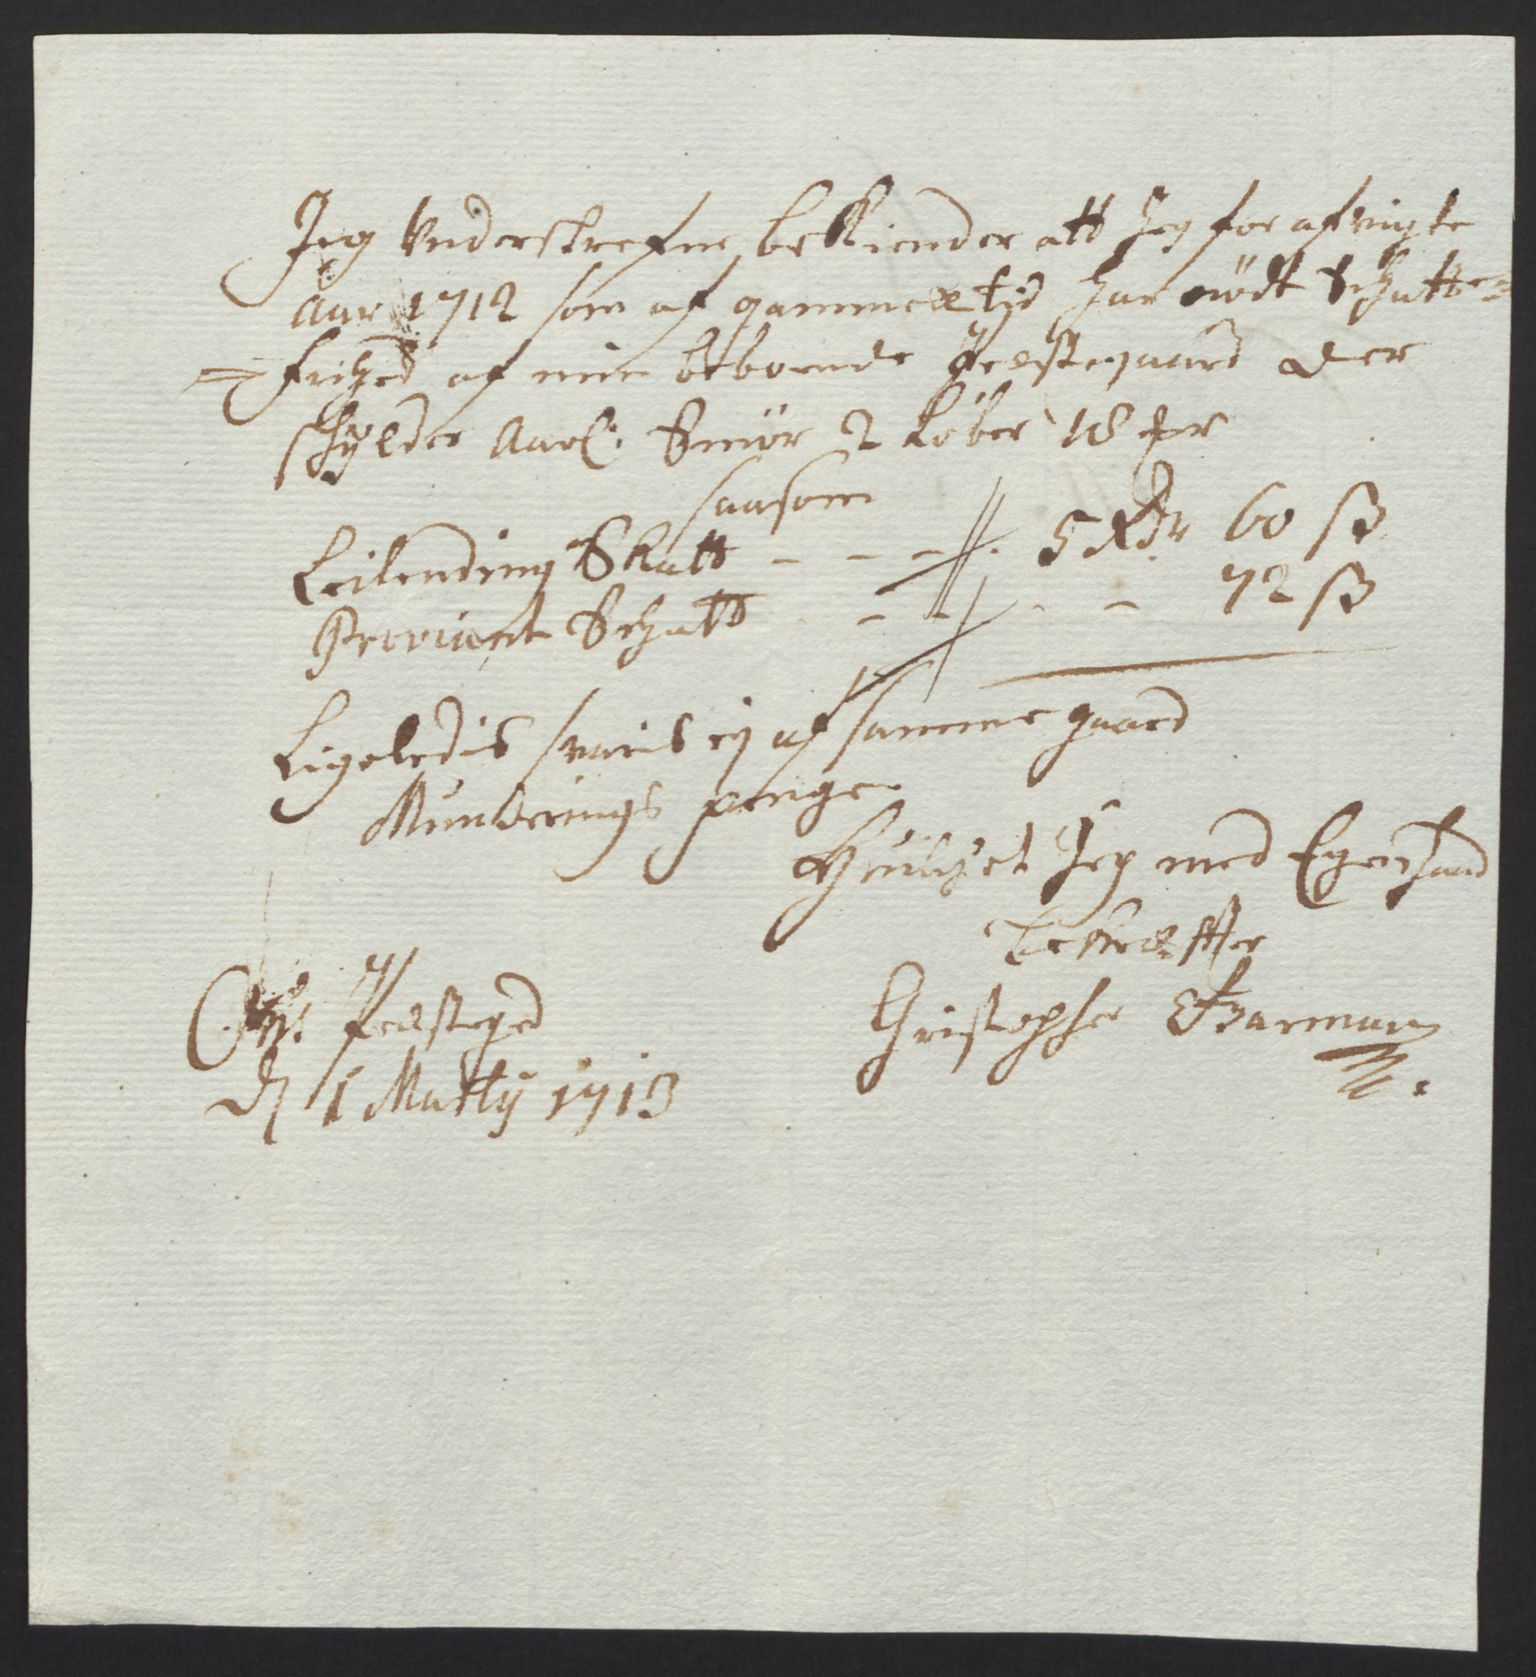 Jeg Underskrefne, bekKiender att Jeg for afvigte
Aar 1712 som af gammel tid har nödt Schatte=
=frihed af min beboende Prestegaard der
schylder Aarl. Smör 2 Løber 18 mr
saasom
Leilending Skatt - - - 5 Rdr 60 ß
Proviant Schatt - - - - 72 ß
Ligeledis svaris ej af samme gaard
Munderings penge.
Hvilchet Jeg med Egenhand
bekreffter
Christopher Garmann
Prestegrd
d 1 Martij 1713